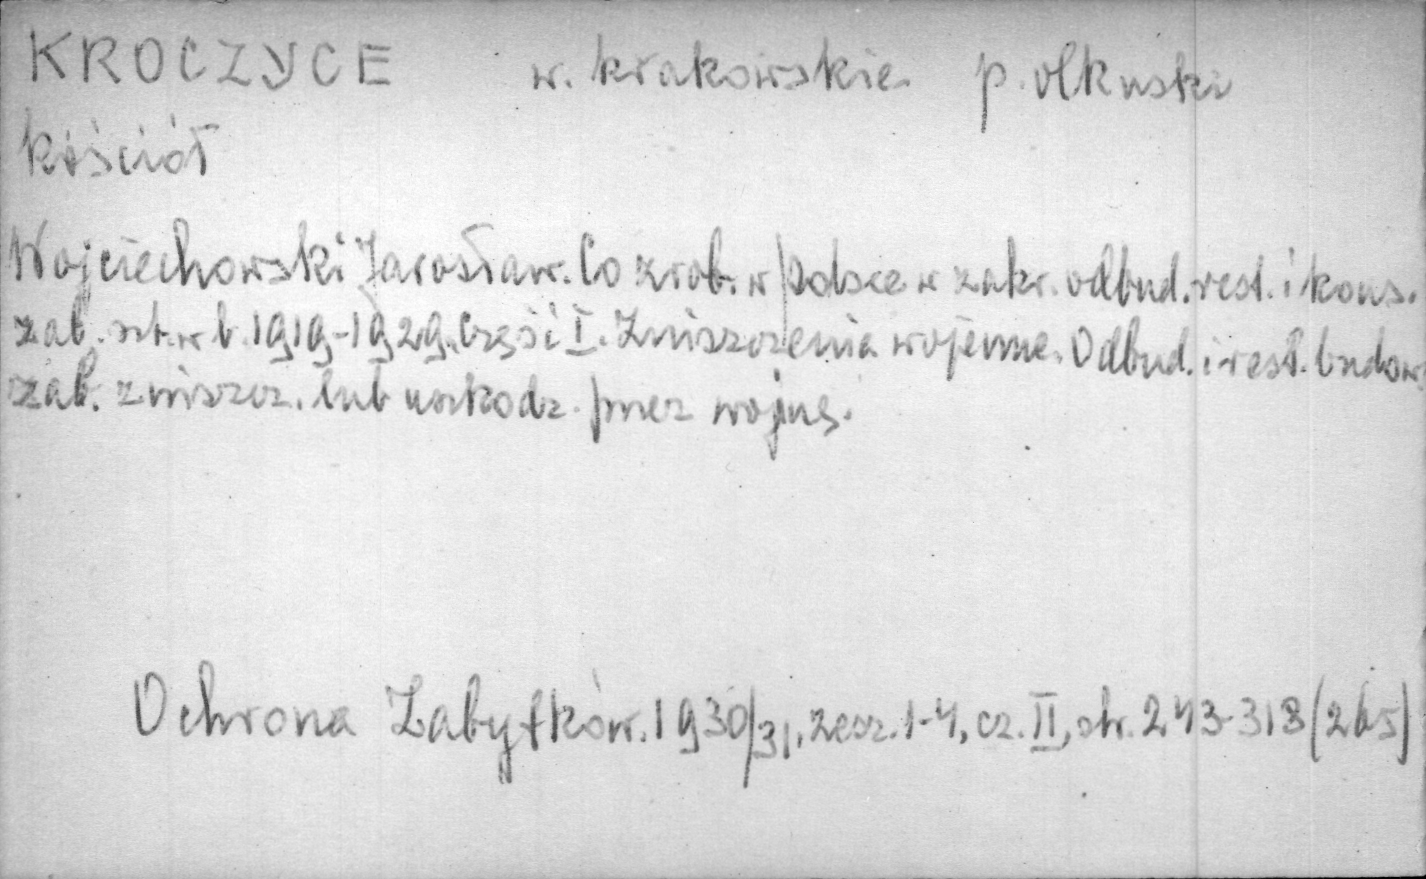 KROCZYCE w. krakowskie p. olkuski
kościół
Wojciechowski Jarosław. Co zrob. w Polsce w zakr. odbud. rest. i kons.
zab. szt. w l. 1919-1929. Część I. Zniszczenia wojenne. Odbud. i rest. budow
zab. zniszcz. lub uszkodz. przez wojnę.
Ochrona Zabytków. 1930/31, zesz. 1-4, cz. II, str. 243-318 (265)